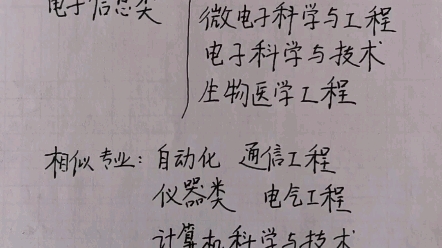 电子信息类
微电子科学与工程
电子科学与技术
生物医学工程
相似专业：自动化 通信工程
仪器类 电气工程
计算机科学与技术